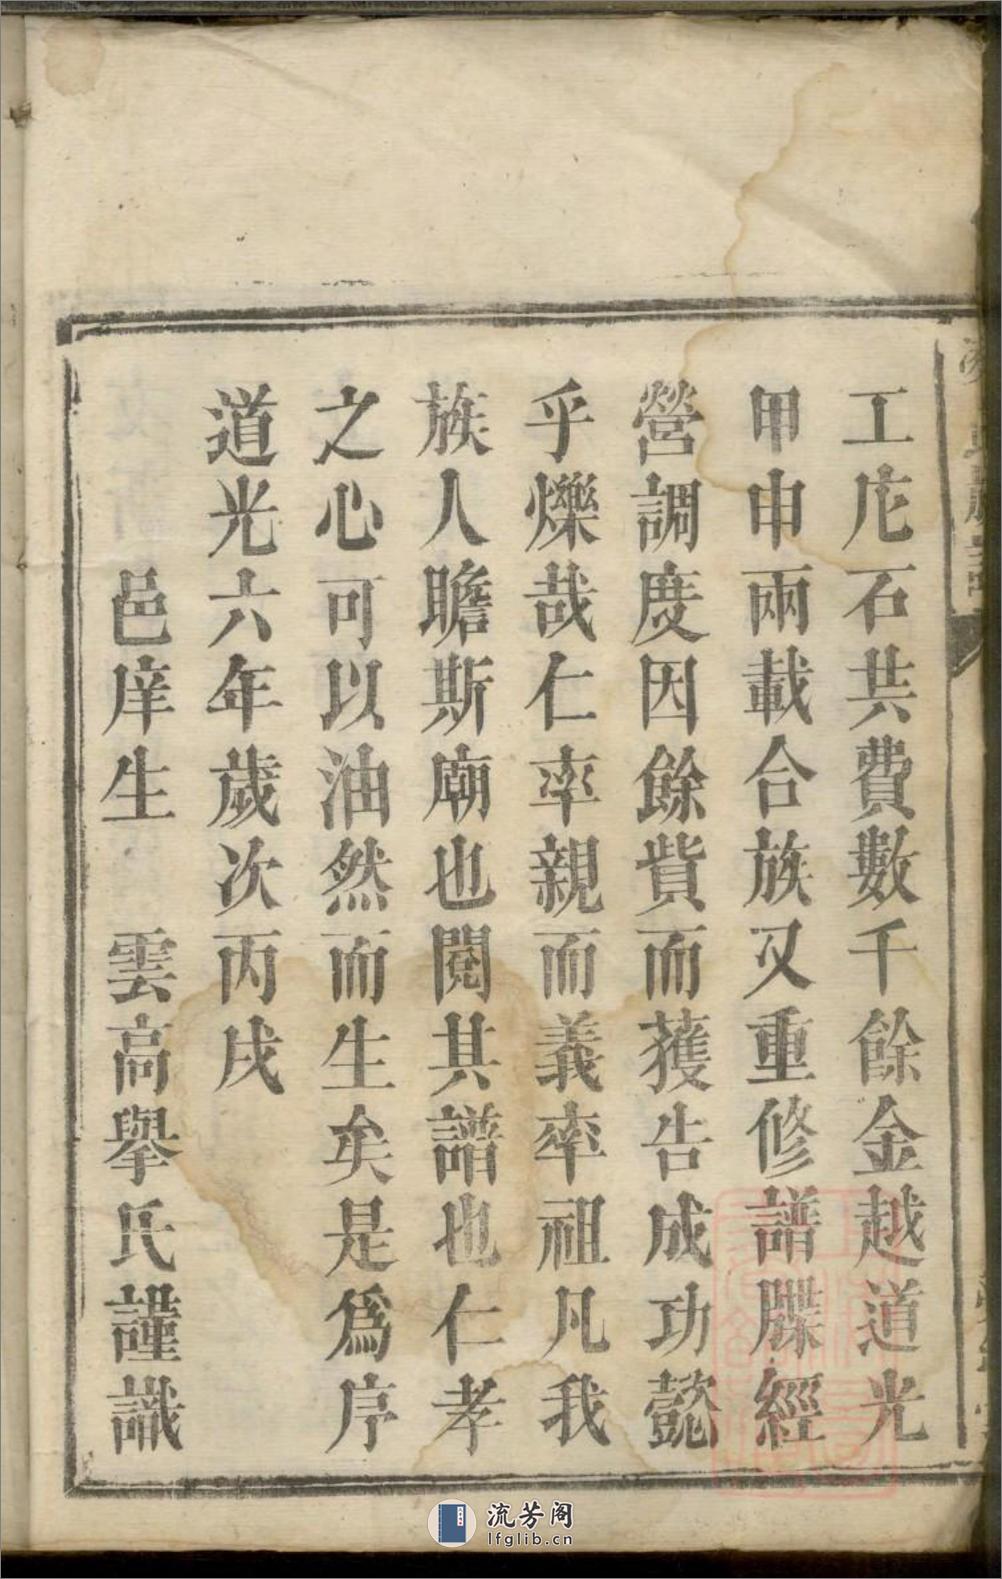 工庀石共費數千餘金越道光
甲申兩載合族又重修譜牒經
營調度因餘貲而獲告成功懿
乎爍哉仁率親而義率祖凡我
族人瞻斯廟也閱其譜也仁孝
之心可以油然而生矣是爲序
道光六年歲次丙戌
邑庠生 雲高舉氏謹識
流芳阁
lfglib.cn